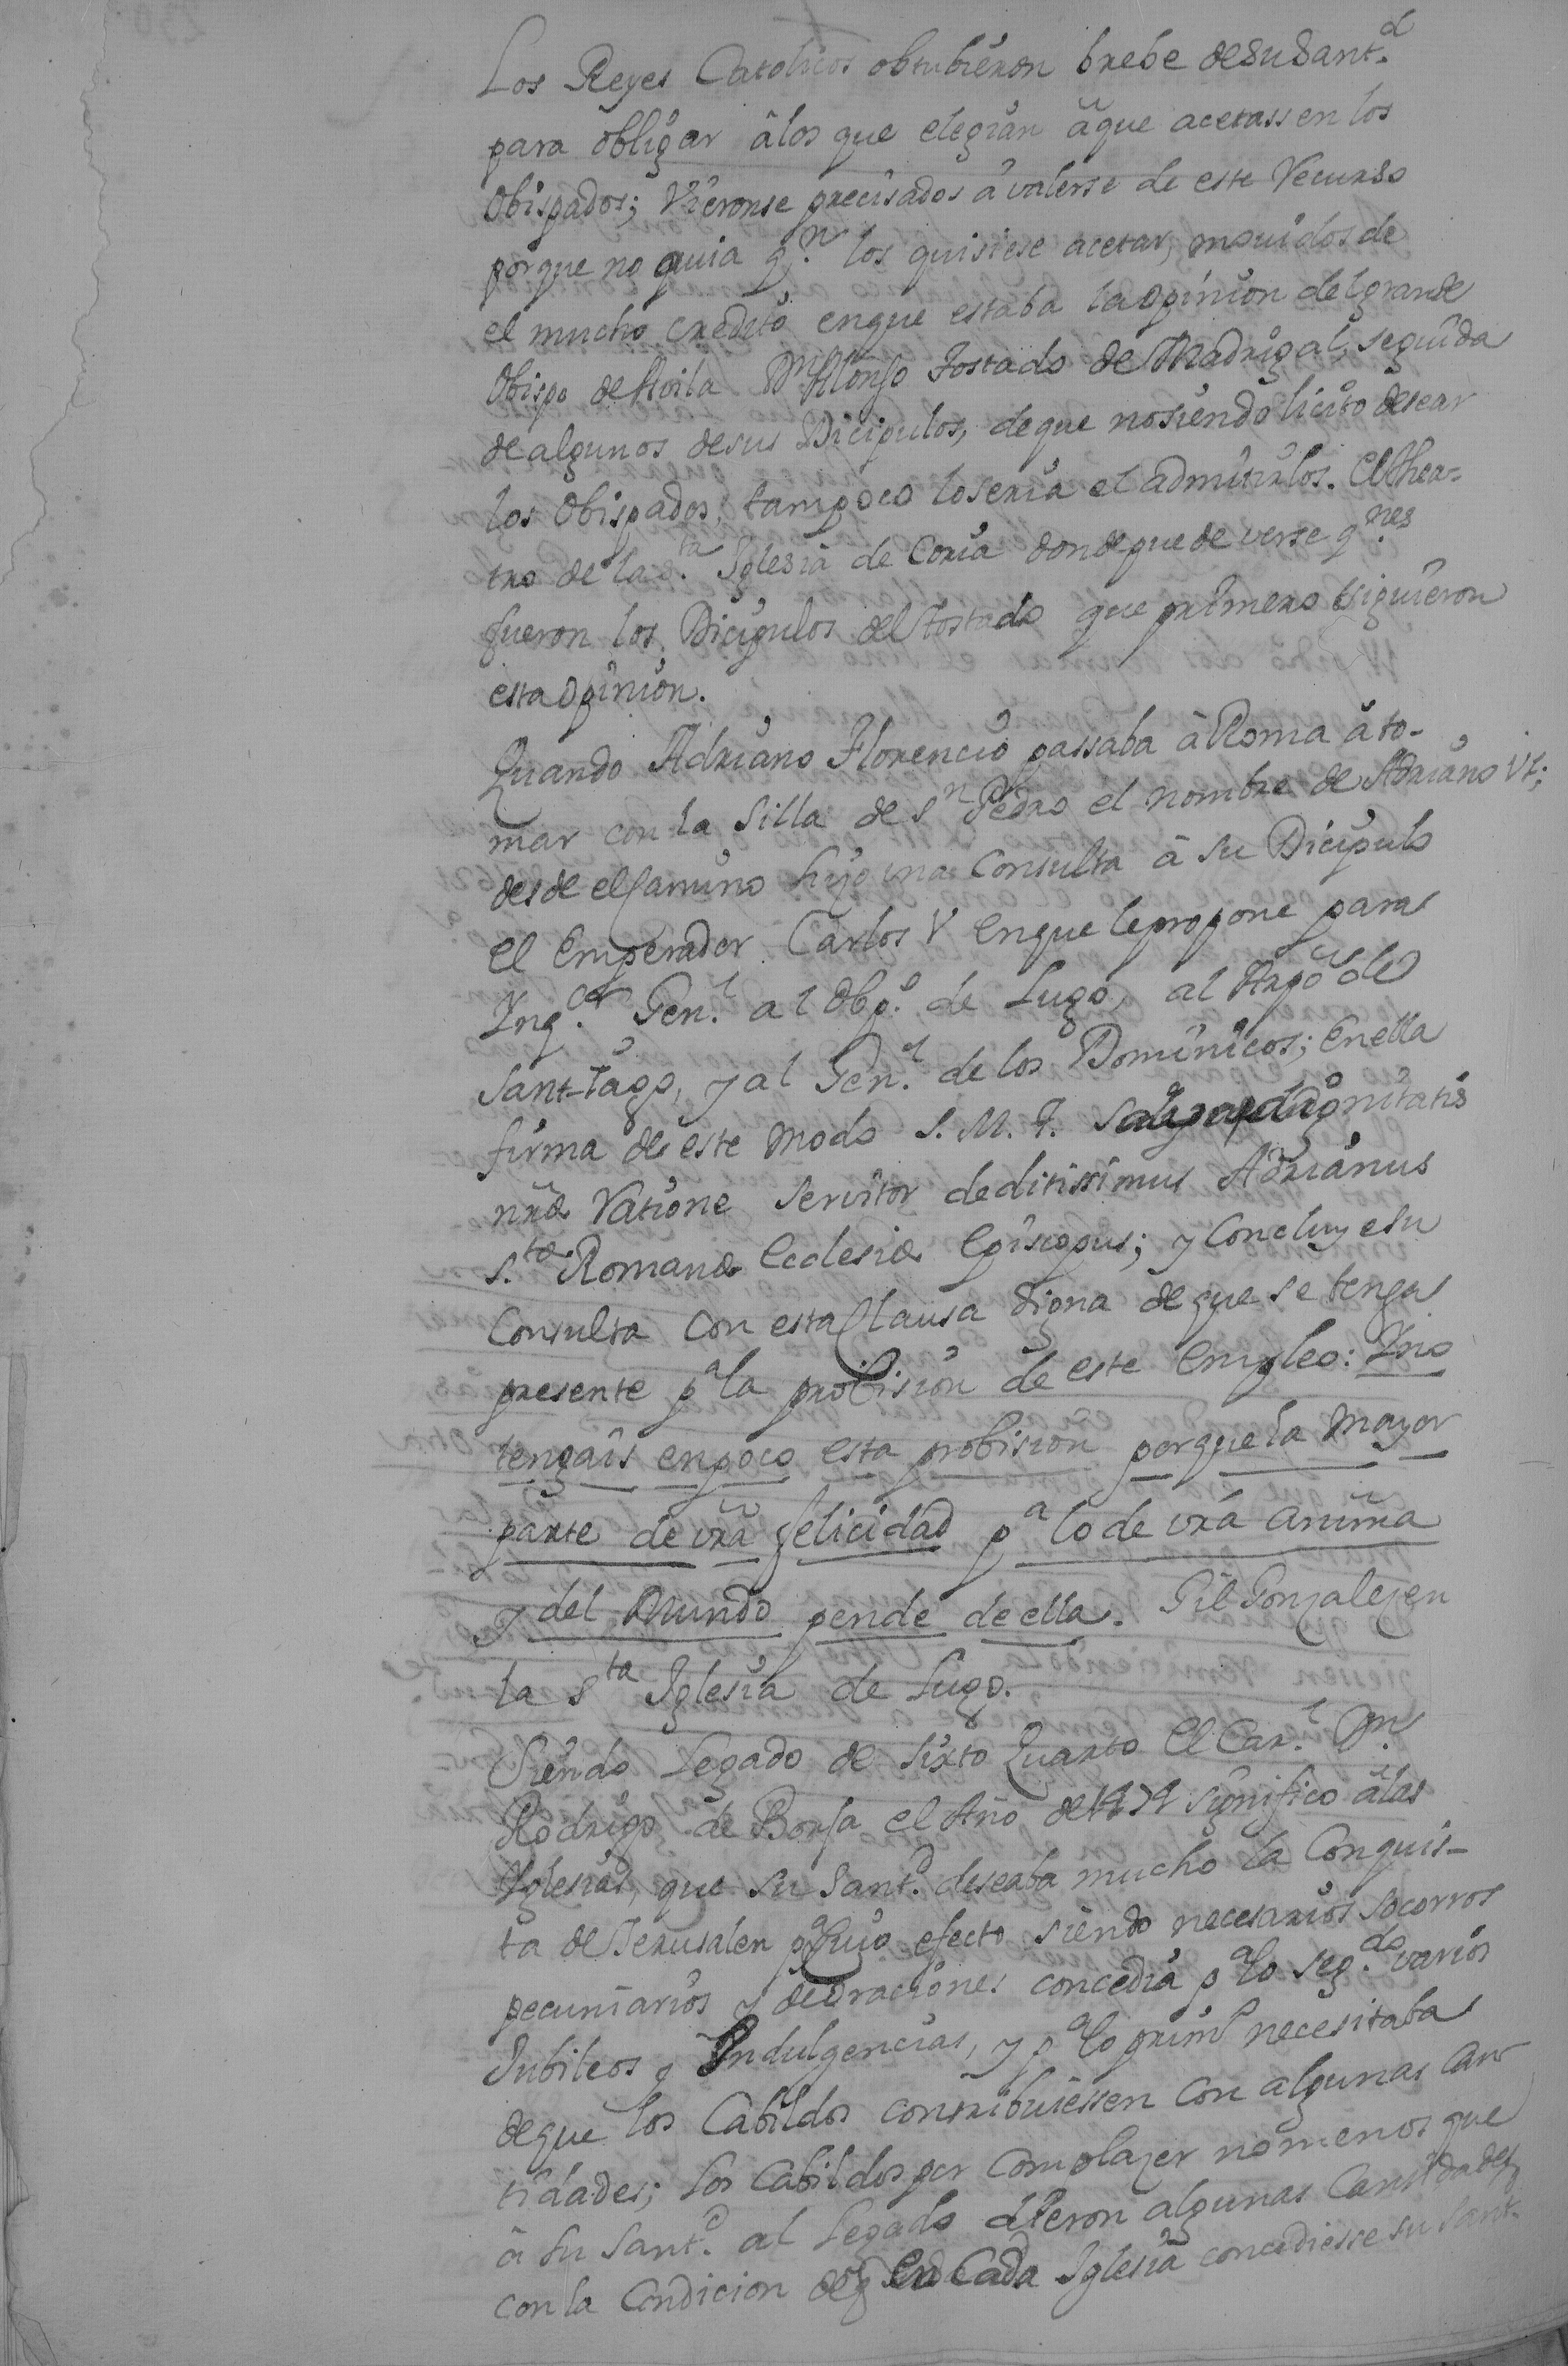 Los Reyes Catolicos obtubieron brebe de su Sant.d
para obligar â los que elegian â que acetassen los
Obispados; Vieronse precisados â valerse de este Recurso
porque no avia q.n los quisiese acetar, movidos de
el mucho credito en que estaba la opinion del grande
Obispo de Avila Dn Alonso Tostado de Madrigal, seguida
de algunos de sus Dicipulos, de que no siendo licito desear
los Obispados, tampoco lo seria el admitirlos. El thea-
tro de la S.ta Iglesia de Coria donde puede verse q.nes
fueron los Dicipulos del Tostado que primero siguieron
esta opinion.
Quando Adriano Florencio passaba â Roma â to-
mar con la Silla de Sn Pedro el nombre de Adriano VI;
desde el Camino hizo una Consulta â su Dicipulo
el Emperador Carlos V en que le propone para
Inq.or Gen.l al Obp.o de Lugo, al Arzo.po de
Sant-Tiago, y al Gen.l de los Dominicos; en ella
firma de este modo S. M. I. Salva dignitatis
nrae Ratione servitor deditissimus Adrianus
S.tae Romanae Ecclesiae Episcopus; y Concluye su
Consulta con esta Clausa digna de que se tenga
presente pa la probision de este Empleo: Y no
tengais en poco esta probision porque la mayor
parte de vrã felicidad pa lo de vrã anima
y del Mundo pende de ella. Gil Gonzalez en
la Sta Iglesia de Lugo.
Siendo Legado de Sixto Quarto el Car.l Dn.
Rodrigo de Borja el Año de 1474 significo â las
Iglesias, que su Sant.d deseaba mucho la Conquis-
ta de Jerusalen pa Cuio efecto siendo necesarios socorros
pecuniarios y de oraciones concedia pa lo seg.do varios
Jubileos y Indulgencias, y pa lo primo necesitaba
de que los Cabildos contribuiessen con algunas Can-
tidades; los Cabildos por complazer no menos que
â su Sant.d al Legado dieron algunas Cantidades
con la Condicion de q en Cada Iglesia concediesse su Sant.